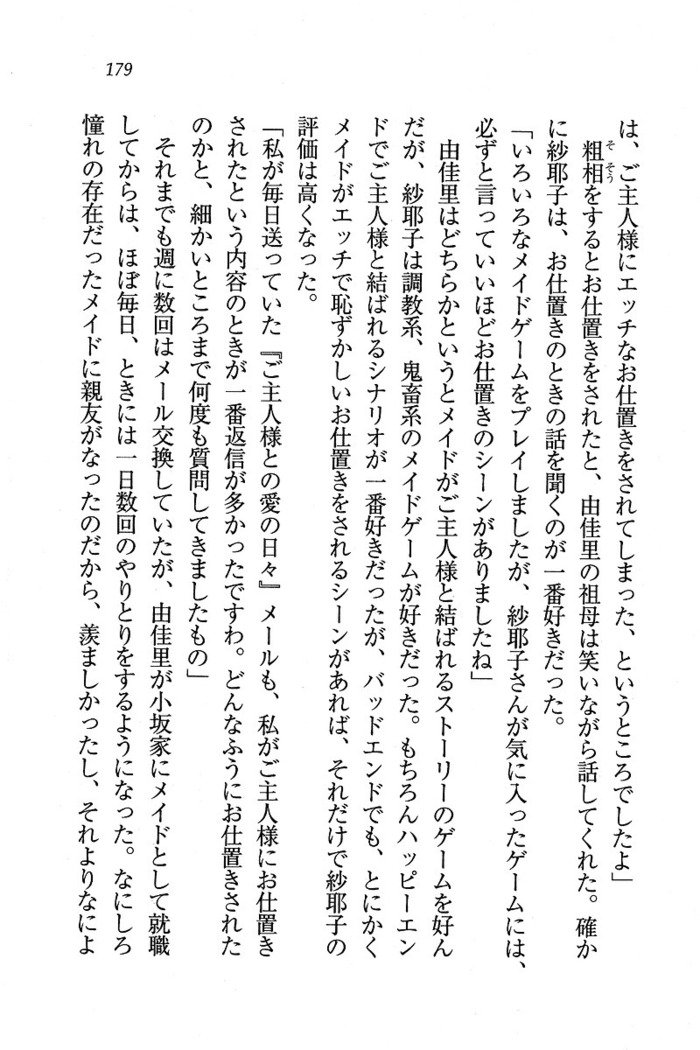 179
は、ご主人様にエッチなお仕置きをされてしまった、というところでしたよ」
粗相をするとお仕置きをされたと、由佳里の祖母は笑いながら話してくれた。確か
に紗耶子は、お仕置きのときの話を聞くのが一番好きだった。
「いろいろなメイドゲームをプレイしましたが、紗耶子さんが気に入ったゲームには、
必ずと言っていいほどお仕置きのシーンがありましたね」
由佳里はどちらかというとメイドがご主人様と結ばれるストーリーのゲームを好ん
だが、紗耶子は調教系、鬼畜系のメイドゲームが好きだった。もちろんハッピーエン
ドでご主人様と結ばれるシナリオが一番好きだったが、バッドエンドでも、とにかく
メイドがエッチで恥ずかしいお仕置きをされるシーンがあれば、それだけで紗耶子の
評価は高くなった。
「私が毎日送っていた『ご主人様との愛の日々』メールも、私がご主人様にお仕置き
されたという内容のときが一番返信が多かったですわ。どんなふうにお仕置きされた
のかと、細かいところまで何度も質問してきましたもの」
それまでも週に数回はメール交換していたが、由佳里が小坂家にメイドとして就職
してからは、ほぼ毎日、ときには一日数回のやりとりをするようになった。なにしろ
憧れの存在だったメイドに親友がなったのだから、羨ましかったし、それよりなによ